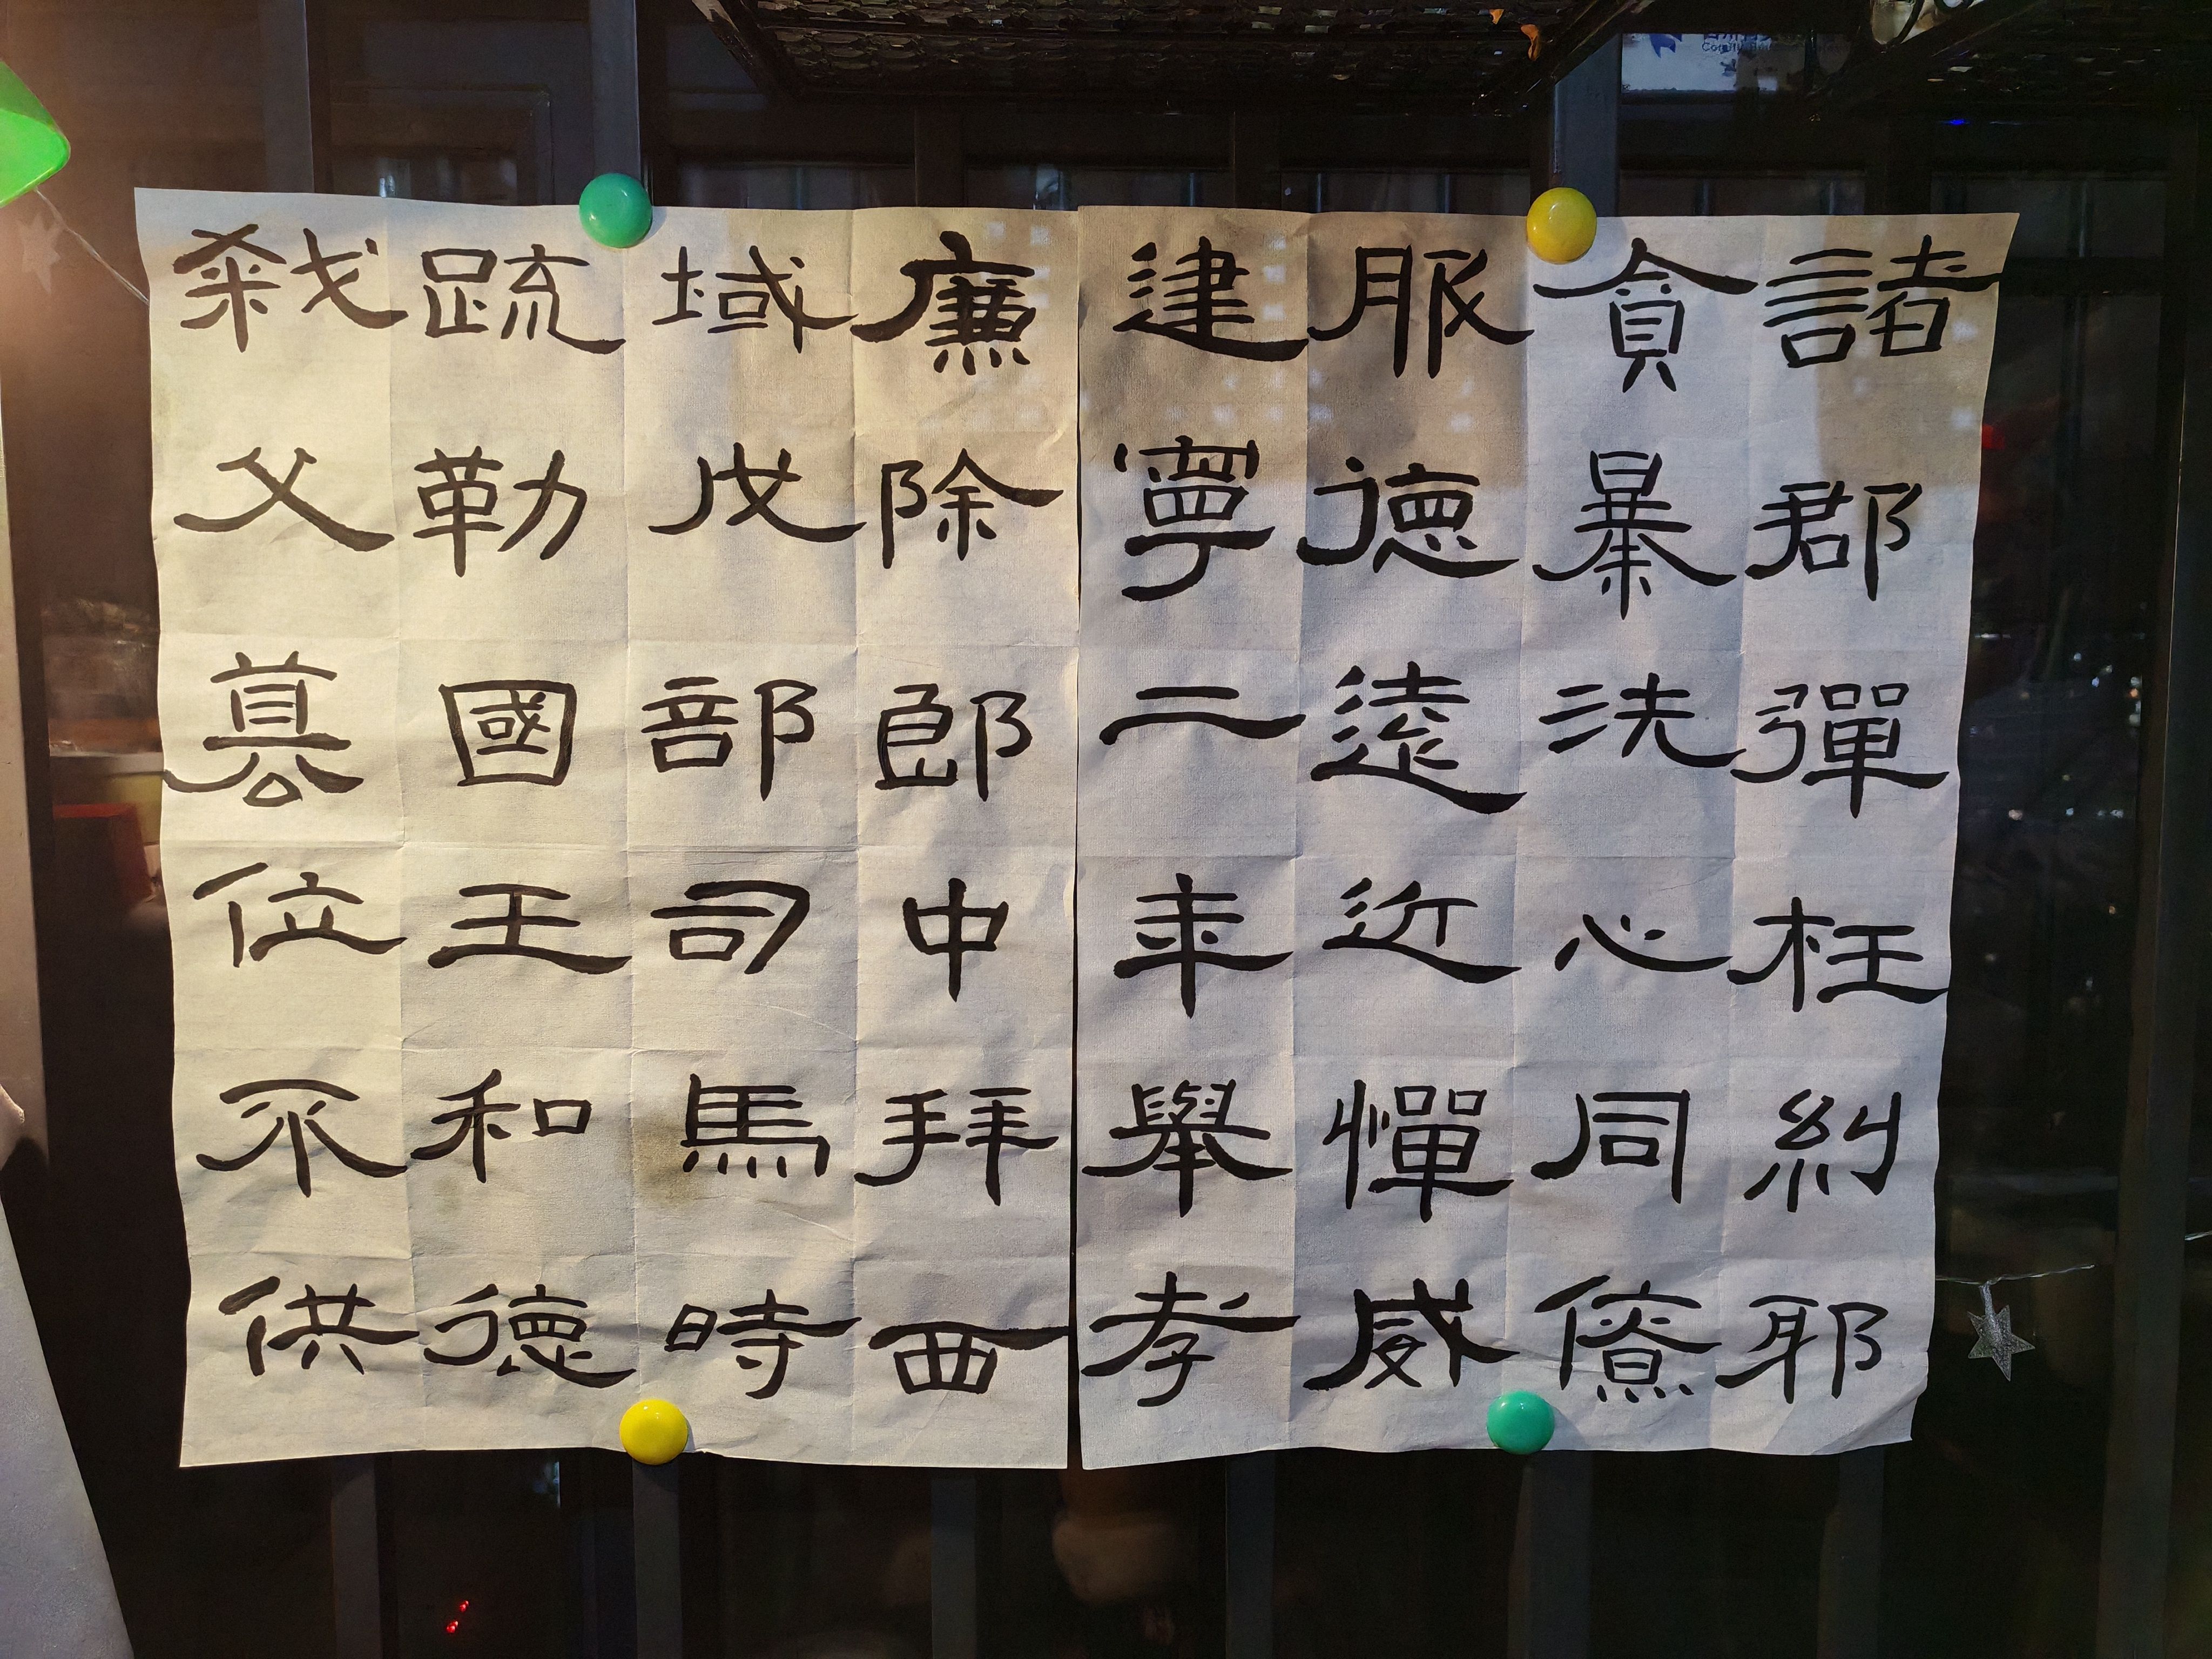 諸郡彈枉糾耶
貪暴洗心同僚
服德遠近憚威
建寧二年舉孝
廉除郎中拜西
域戊部司馬時
疏勒國王和德
弒父篡位不供